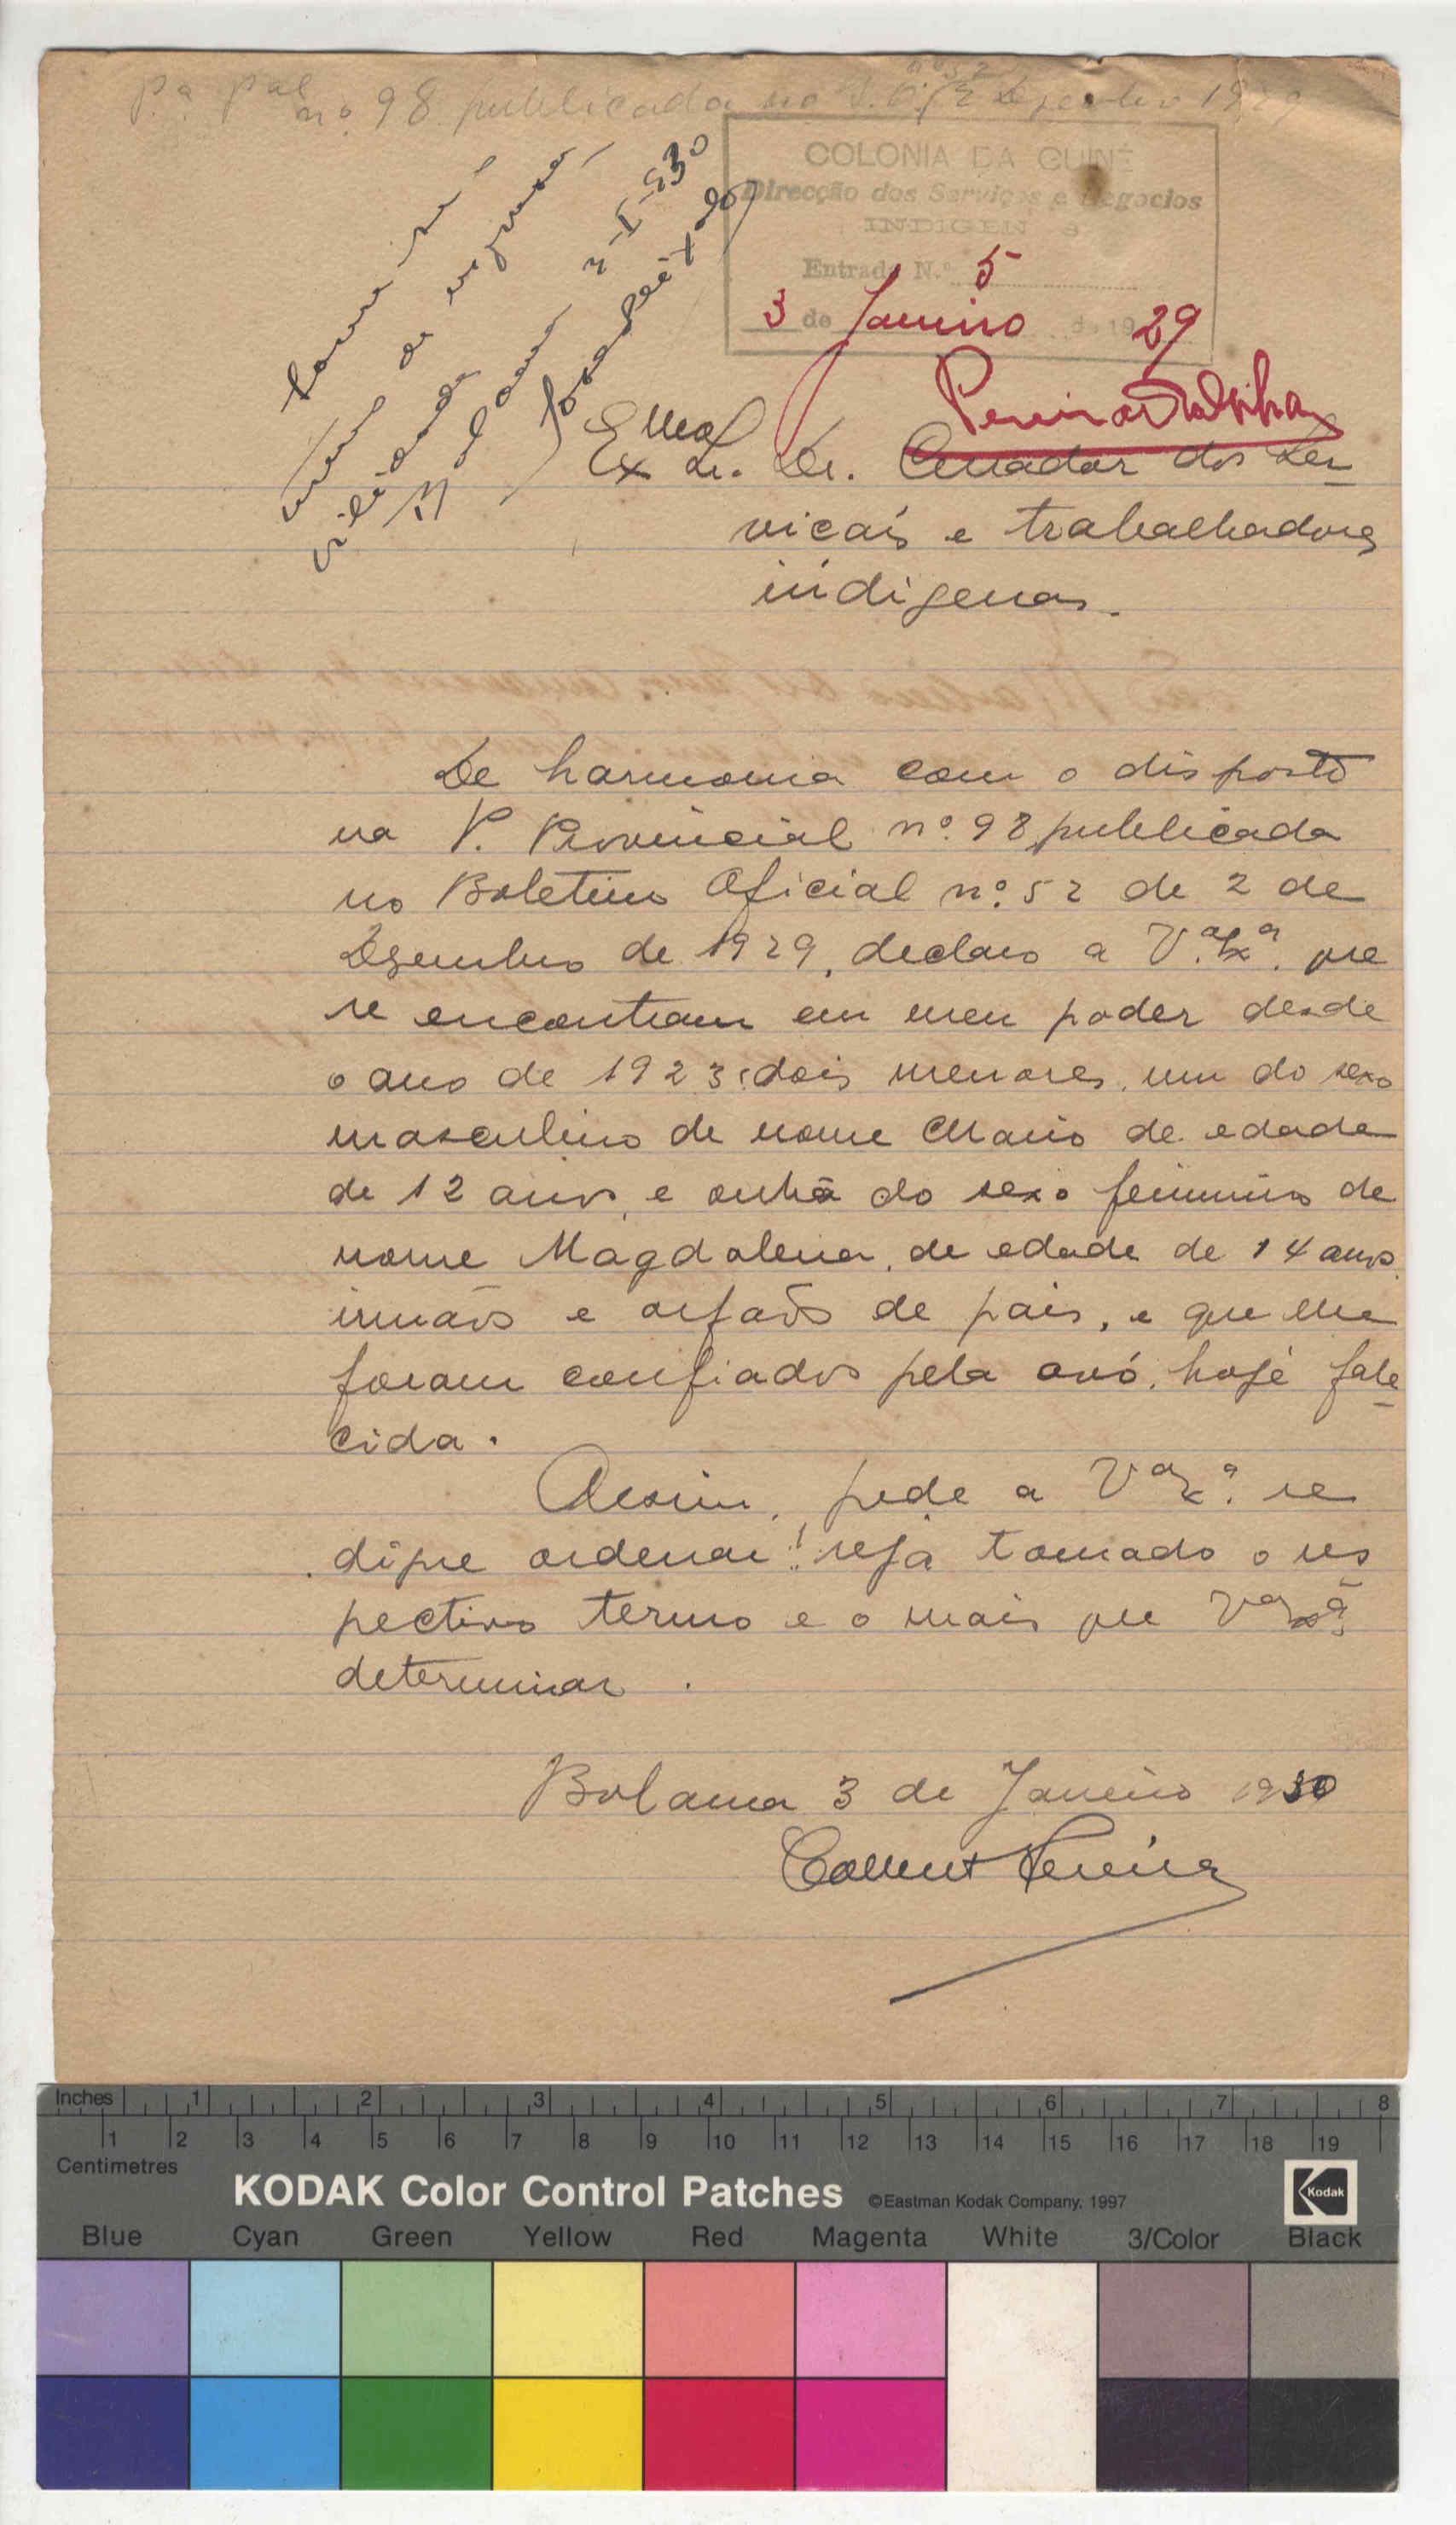 nº 52
nº 98 publicada no B. O. 2 Dezembro 1929
COLONIA DA GUINÉ
Direcção dos Serviços e Negocios
INDIGEN S
Entrada N.º 5
3 de Janeiro de 1929
Tome-se
termo de
Bolama 3-I-930
Exmo Sr. Dr. Curador dos Ser_
viçais e trabalhadores
indígenas.
De harmonia com o disposto
na P. Provincial nº. 98 publicada
no Boletim Oficial nº. 52 de 2 de
Dezembro de 1929, declaro a V.ª Ex.ª que
se encontram em meu poder desde
o ano de 1923 dois menores, um do sexo
masculino de nome Mario de edade
de 12 anos, e outro do sexo feminino de
nome Magdalena, de edade de 14 anos
irmãos e orfaõs de pais, e que me
foram confiados pela avó, hoje fale_
cida.
Assim, pede a Vª Exª. se
digne ordenar seja tomado o res
pectivo termo e o mais que Vª Exª
determinar.
Bolama 3 de Janeiro 1930
Pereira
Inches 1 2 3 4 5 6 7 8
1 2 3 4 5 6 7 8 9 10 11 12 13 14 15 16 17 18 19
Centimetres
KODAK Color Control Patches ©Eastman Kodak Company, 1997 Kodak
Blue Cyan Green Yellow Red Magenta White 3/Color Black